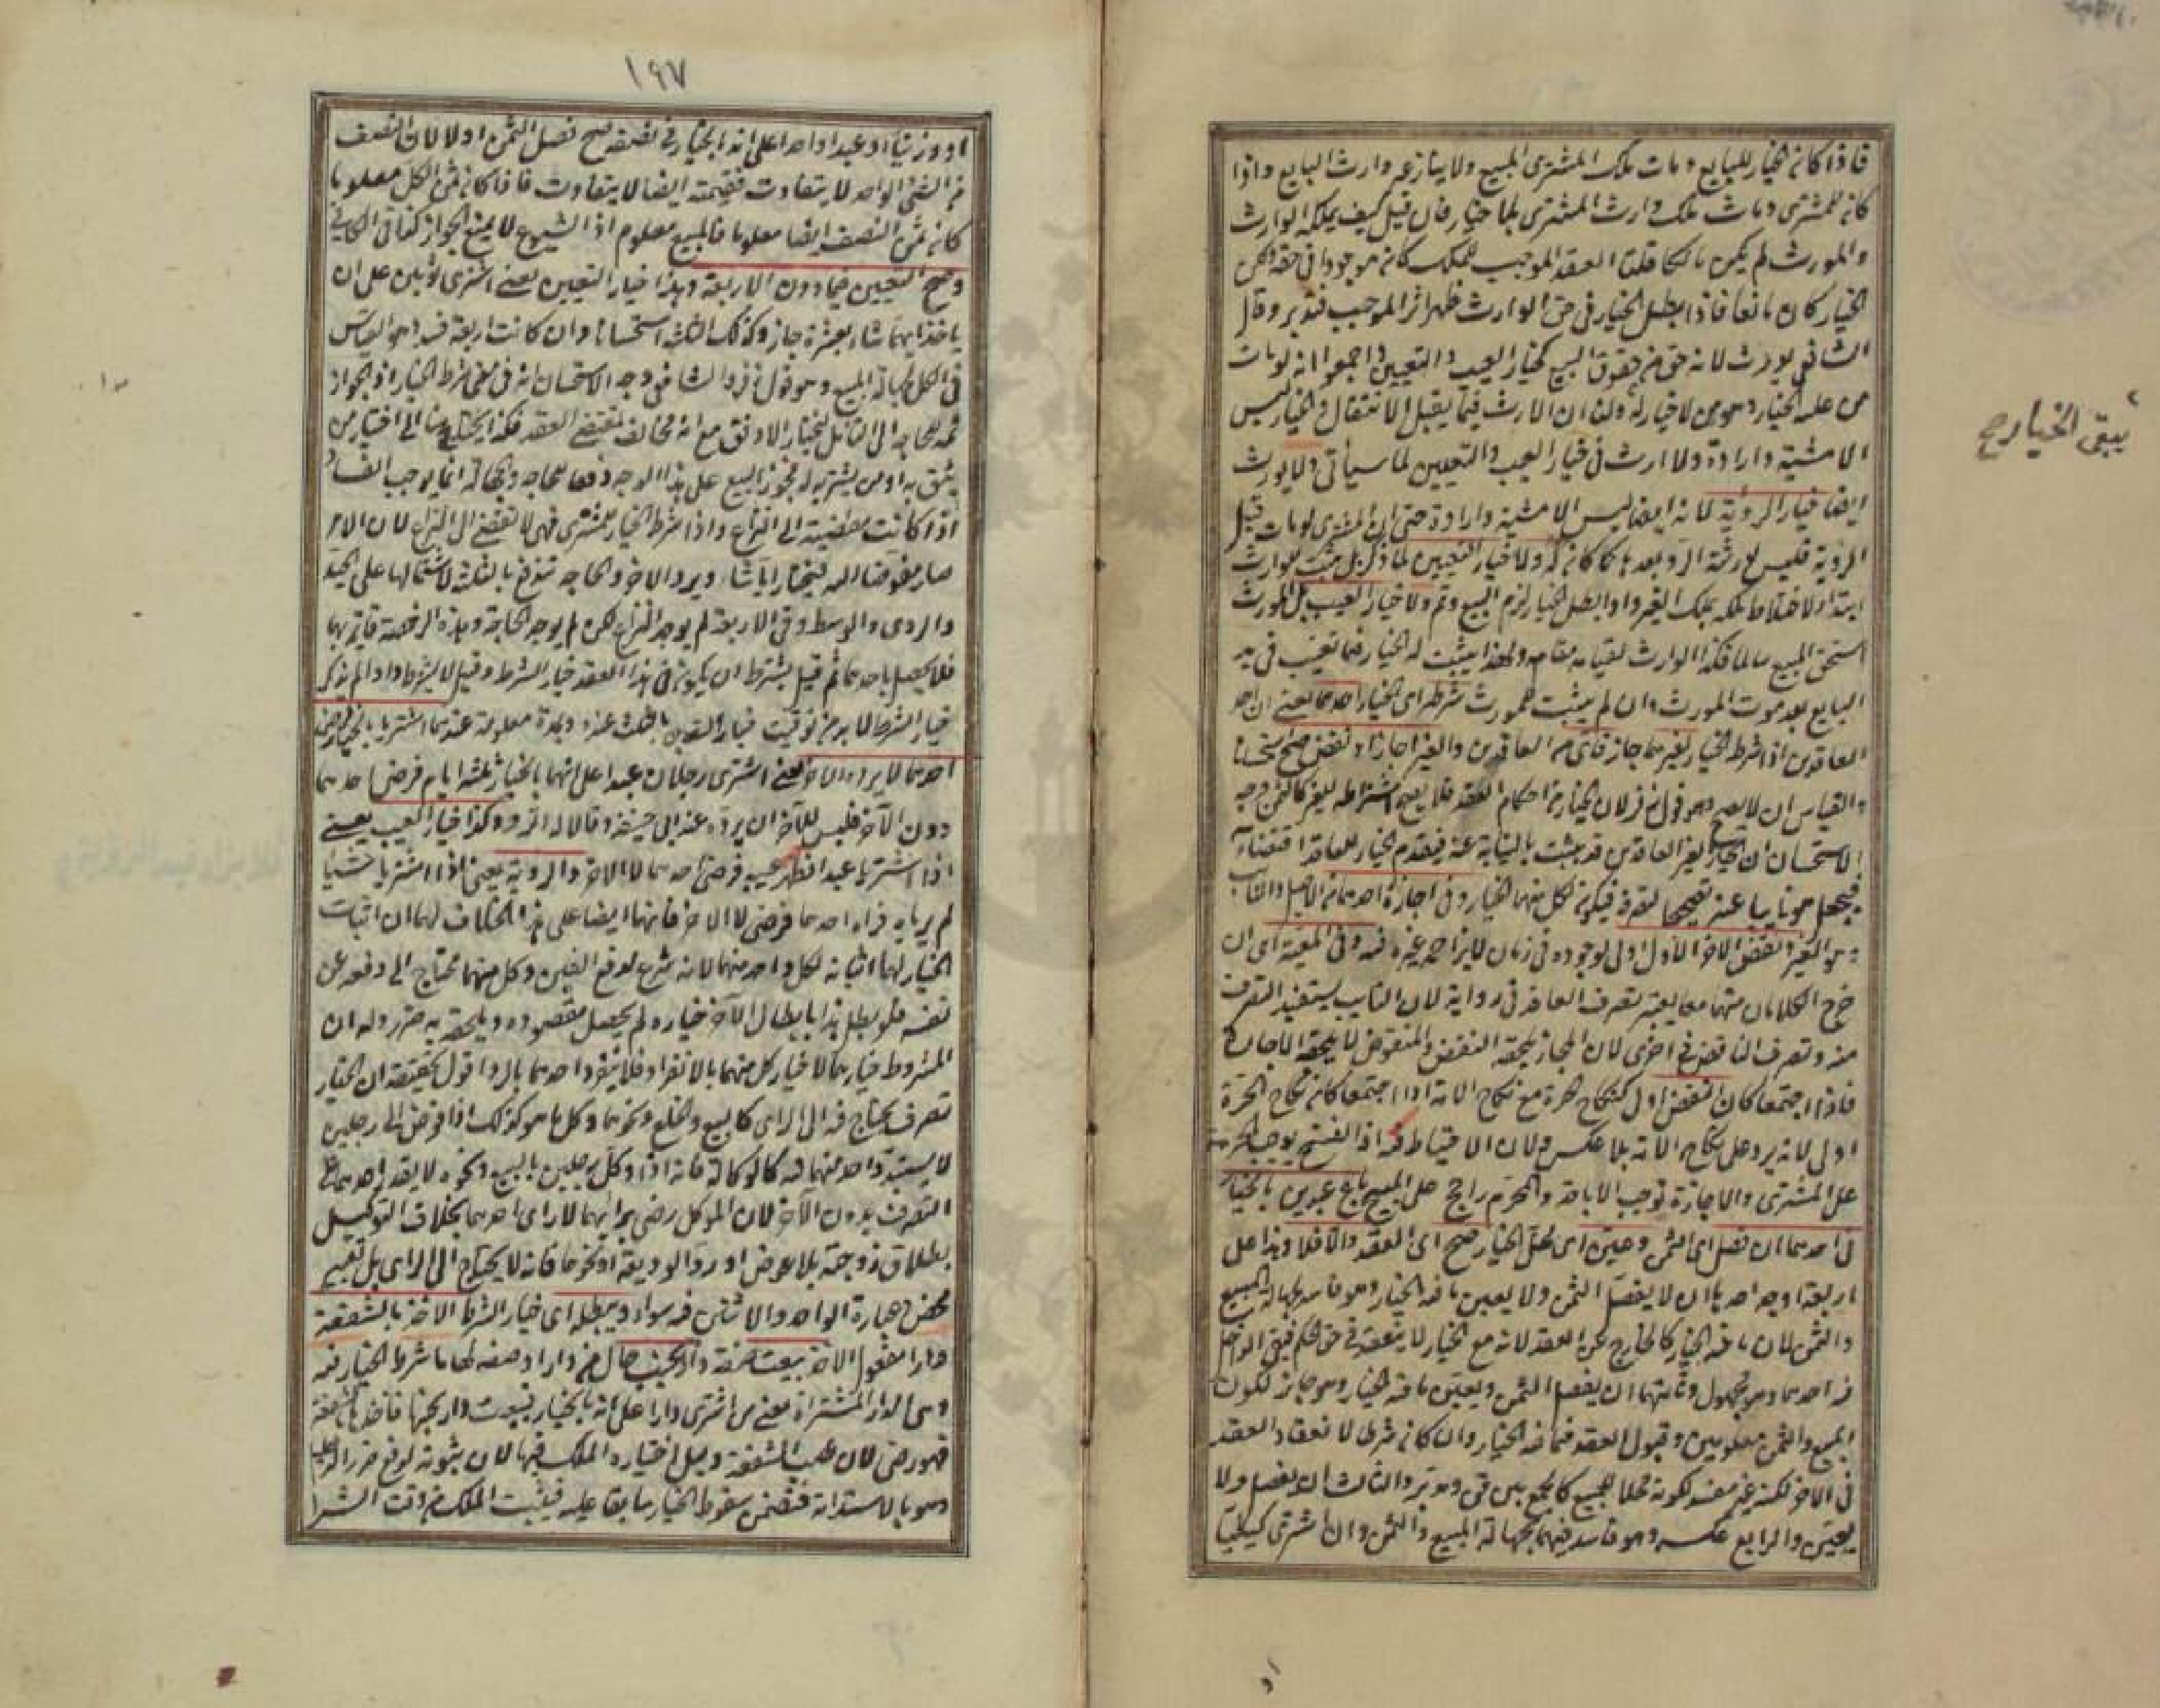 فاذا كان الخيار للبايع ومات ملك المشترى المبيع ولا ينازعه وارث البايع واذا
كان للمشترى ومات ملك وارث المشترى بلا خيار فان قيل كيف يملكه الوارث
والمورث لم يكن مالكا قلنا العقد الموجب للملك كان موجودا فى حقه لكن
الخيار كان مانعا فاذا بطل الخيار فى حق الوارث ظهر اثر الموجب فتدبر وقال
الشافعى يورث لانه حق من حقوق البيع كخيار العيب والتعيين واجمعوا انه لو مات
من عليه الخيار وهو من لا خيار له ولنا ان الارث فيما يقبل الانتقال والخيار ليس
الا مشية وارادة ولا ارث فى خيار العيب والتعيين لما سيأتى ولا يورث
ايضا خيار الرؤية لانه ايضا ليس الا مشية وارادة حتى ان المشترى لو مات قبل
الرؤية فليس لورثته الرد بعدها كما كان له ولا خيار التعيين لما ذكر بل يثبت للوارث
ابتداء لاختلاط ملكه بملك الغير واذا بطل الخيار لزم البيع وتم ولا خيار العيب بل المورث
استحق المبيع سالما فكذا الوارث لقيامه مقامه ولهذا يثبت له الخيار فيما تعيب فى يد
البايع بعد موت المورث وان لم يثبت للمورث شرط اى الخيار احدهما يعنى ان احد
العاقدين اذا شرط الخيار لغيرهما جاز فاى من العاقدين والغير اجاز او نقض صح استحسانا
والقياس ان لا يصح وهو قول زفر لان الخيار من احكام العقد فلا يصح اشتراطه لغيره كالثمن وجه
الاستحسان ان الخيار لغير العاقدين قد يثبت بالنيابة عنه فيقدم الخيار للعاقد اقتضاء
فيجعل هو نايبا عنه تصحيحا لتصرفه فيكون لكل منهما الخيار وفى اجازة احدهما من الاصيل والنايب
هو الغير ونقض الاخر الاول اولى لوجوده فى زمان لا يزاحمه غيره فيه وفى المعية اى ان
خرج الكلامان منهما معا يعتبر تصرف العاقد فى رواية لان النايب يستفيد التصرف
منه وتصرف الناقض فى اخرى لان المجاز يلحقه النقض والمنقوض لا يلحقه الاجازة
فاذا اجتمعا كان النقض اولى كنكاح الحرة مع نكاح الامة اذا اجتمعا كان نكاح الحرة
اولى لانه يرد على نكاح الامة بلا عكس ولان الاحتياط فيه اذ الفسخ يوجب الحرمة
على المشترى والاجازة توجب الاباحة والمحرم راجح على المبيح باع عبدين بالخيار
فى احدهما ان فصل اى الثمن وعين اى محل الخيار صح اى العقد والا فلا وهذا على
اربعة اوجه احدها ان لا يفصل الثمن ولا يعين ما فيه الخيار وهو فاسد لجهالة المبيع
والثمن لان ما فيه الخيار كالخارج عن العقد لانه مع الخيار لا ينعقد فى حق الحكم فبقى الداخل
فيه احدهما وهو مجهول وثانيهما ان يفصل الثمن ويعين ما فيه الخيار وهو جائز لكون
المبيع والثمن معلومين وقبول العقد فيما فيه الخيار وان كان شرط لانعقاد العقد
فى الاخر لكنه غير مفسد لكونه محلا للبيع كالجمع بين قن ومدبر والثالث ان يفصل ولا
يعين والرابع عكسه وهو فاسد فيهما لجهالة المبيع والثمن وان اشترى كيليا
يبقى الخيار صح
١٩٧
او وزنيا او عبدا واحدا على انه بالخيار فى نصفه صح فصل الثمن او لا لان النصف
من الشئ الواحد لا يتفاوت فقيمته ايضا لا يتفاوت فاذا كان ثمن الكل معلوما
كان ثمن النصف ايضا معلوما فالمبيع معلوم اذ الشيوع لا يمنع الجواز كذا فى الكافى
وصح التعيين فيما دون الاربعة وهذا خيار التعيين يعنى اشترى ثوبين على ان
ياخذ ايهما شاء بعشرة جاز وكذلك الثلثة استحسانا وان كانت اربعة فسد وهو القياس
فى الكل لجهالة المبيع وهو قول زفر والشافعى وجه الاستحسان انه فى معنى شرط الخيار اذ الجواز
ثمه للحاجة الى التأمل ليختار الاوفق مع انه مخالف لمقتضى العقد فكذا يحتاج هنا الى اختيار من
يثق به او من يشتريه له فجوز البيع على هذا الوجه دفعا للحاجة والجهالة انما يوجب الفساد
اذا كانت مفضية الى النزاع واذا شرط الخيار للمشترى فهى لا تفضى الى النزاع لان الامر
صار مفوضا اليه ليختار ايا شاء ويرد الاخر والحاجة تندفع بالثلثة لاشتمالها على الجيد
والردى والوسط وفى الاربعة لم يوجد النزاع لكن لم يوجد الحاجة وهذه الرخصة قايم بهما
فلا يحصل باحدهما ثم قيل يشترط ان يكون فى هذا العقد خيار الشرط وقيل لا يشترط واذا لم يذكر
خيار الشرط لا بد من توقيت خيار التعيين بالثلث عنده وبمدة معلومة عندهما اشتريا بالخيار فرضى
احدهما لا يرده الاخر يعنى اشترى رجلان عبدا على انهما بالخيار ثلثة ايام فرضى احدهما
دون الآخر فليس للآخر ان يرده عند ابى حنيفة وقالا له الرد وكذا خيار العيب يعنى
اذا اشتريا عبدا فظهر عيب فرضى احدهما لا الاخر والرؤية يعنى اذا اشتريا شيئا
لم يرياه فراه احدهما فرضى لا الاخر فانهما ايضا على هذا الخلاف لهما ان اثبات
الخيار لهما اثباته لكل واحد منهما لانه شرع لدفع الغبن وكل منهما محتاج الى دفعه عن
نفسه فلو بطل هذا بابطال الآخر خياره لم يحصل مقصوده ويلحقه به ضرر وله ان
المشروط خيارهما لا خيار كل منهما بالانفراد فلا ينفرد احدهما بالرد اقول تحقيقه ان الخيار
تصرف يحتاج فيه الى الراى كالبيع والخلع ونحوهما وكل ما هو كذلك اذا فوض الى رجلين
لا يستبد واحد منهما فيه كالوكالة فانه اذا وكل رجلين بالبيع ونحوه لا يقدر احدهما على
التصرف بدون الآخر لان الموكل رضى برايهما لا راى احدهما بخلاف التوكيل
بطلاق زوجته بلا عوض او رد الوديعة او نحوهما فانه لا يحتاج الى الراى بل تعبير
محض وعبارة الواحد والاثنين فيه سواء ويبطله اى خيار الشرط الاخذ بالشفعة
دارا مفعول الاخذ بيعت صفة دارا بجنب حال من دارا وصفه لها ما شرط الخيار فيه
وهى الدار المشتراة معنى من اشترى دارا على انه بالخيار فبيعت دار بجنبها فاخذها بالشفعة
فهو رضى لان طلب الشفعة دليل اختياره الملك فيها لان ثبوته لدفع ضرر الدخيل
وهو بالاستدامة فتضمن سقوط الخيار سابقا عليه فيثبت الملك من وقت الشرا